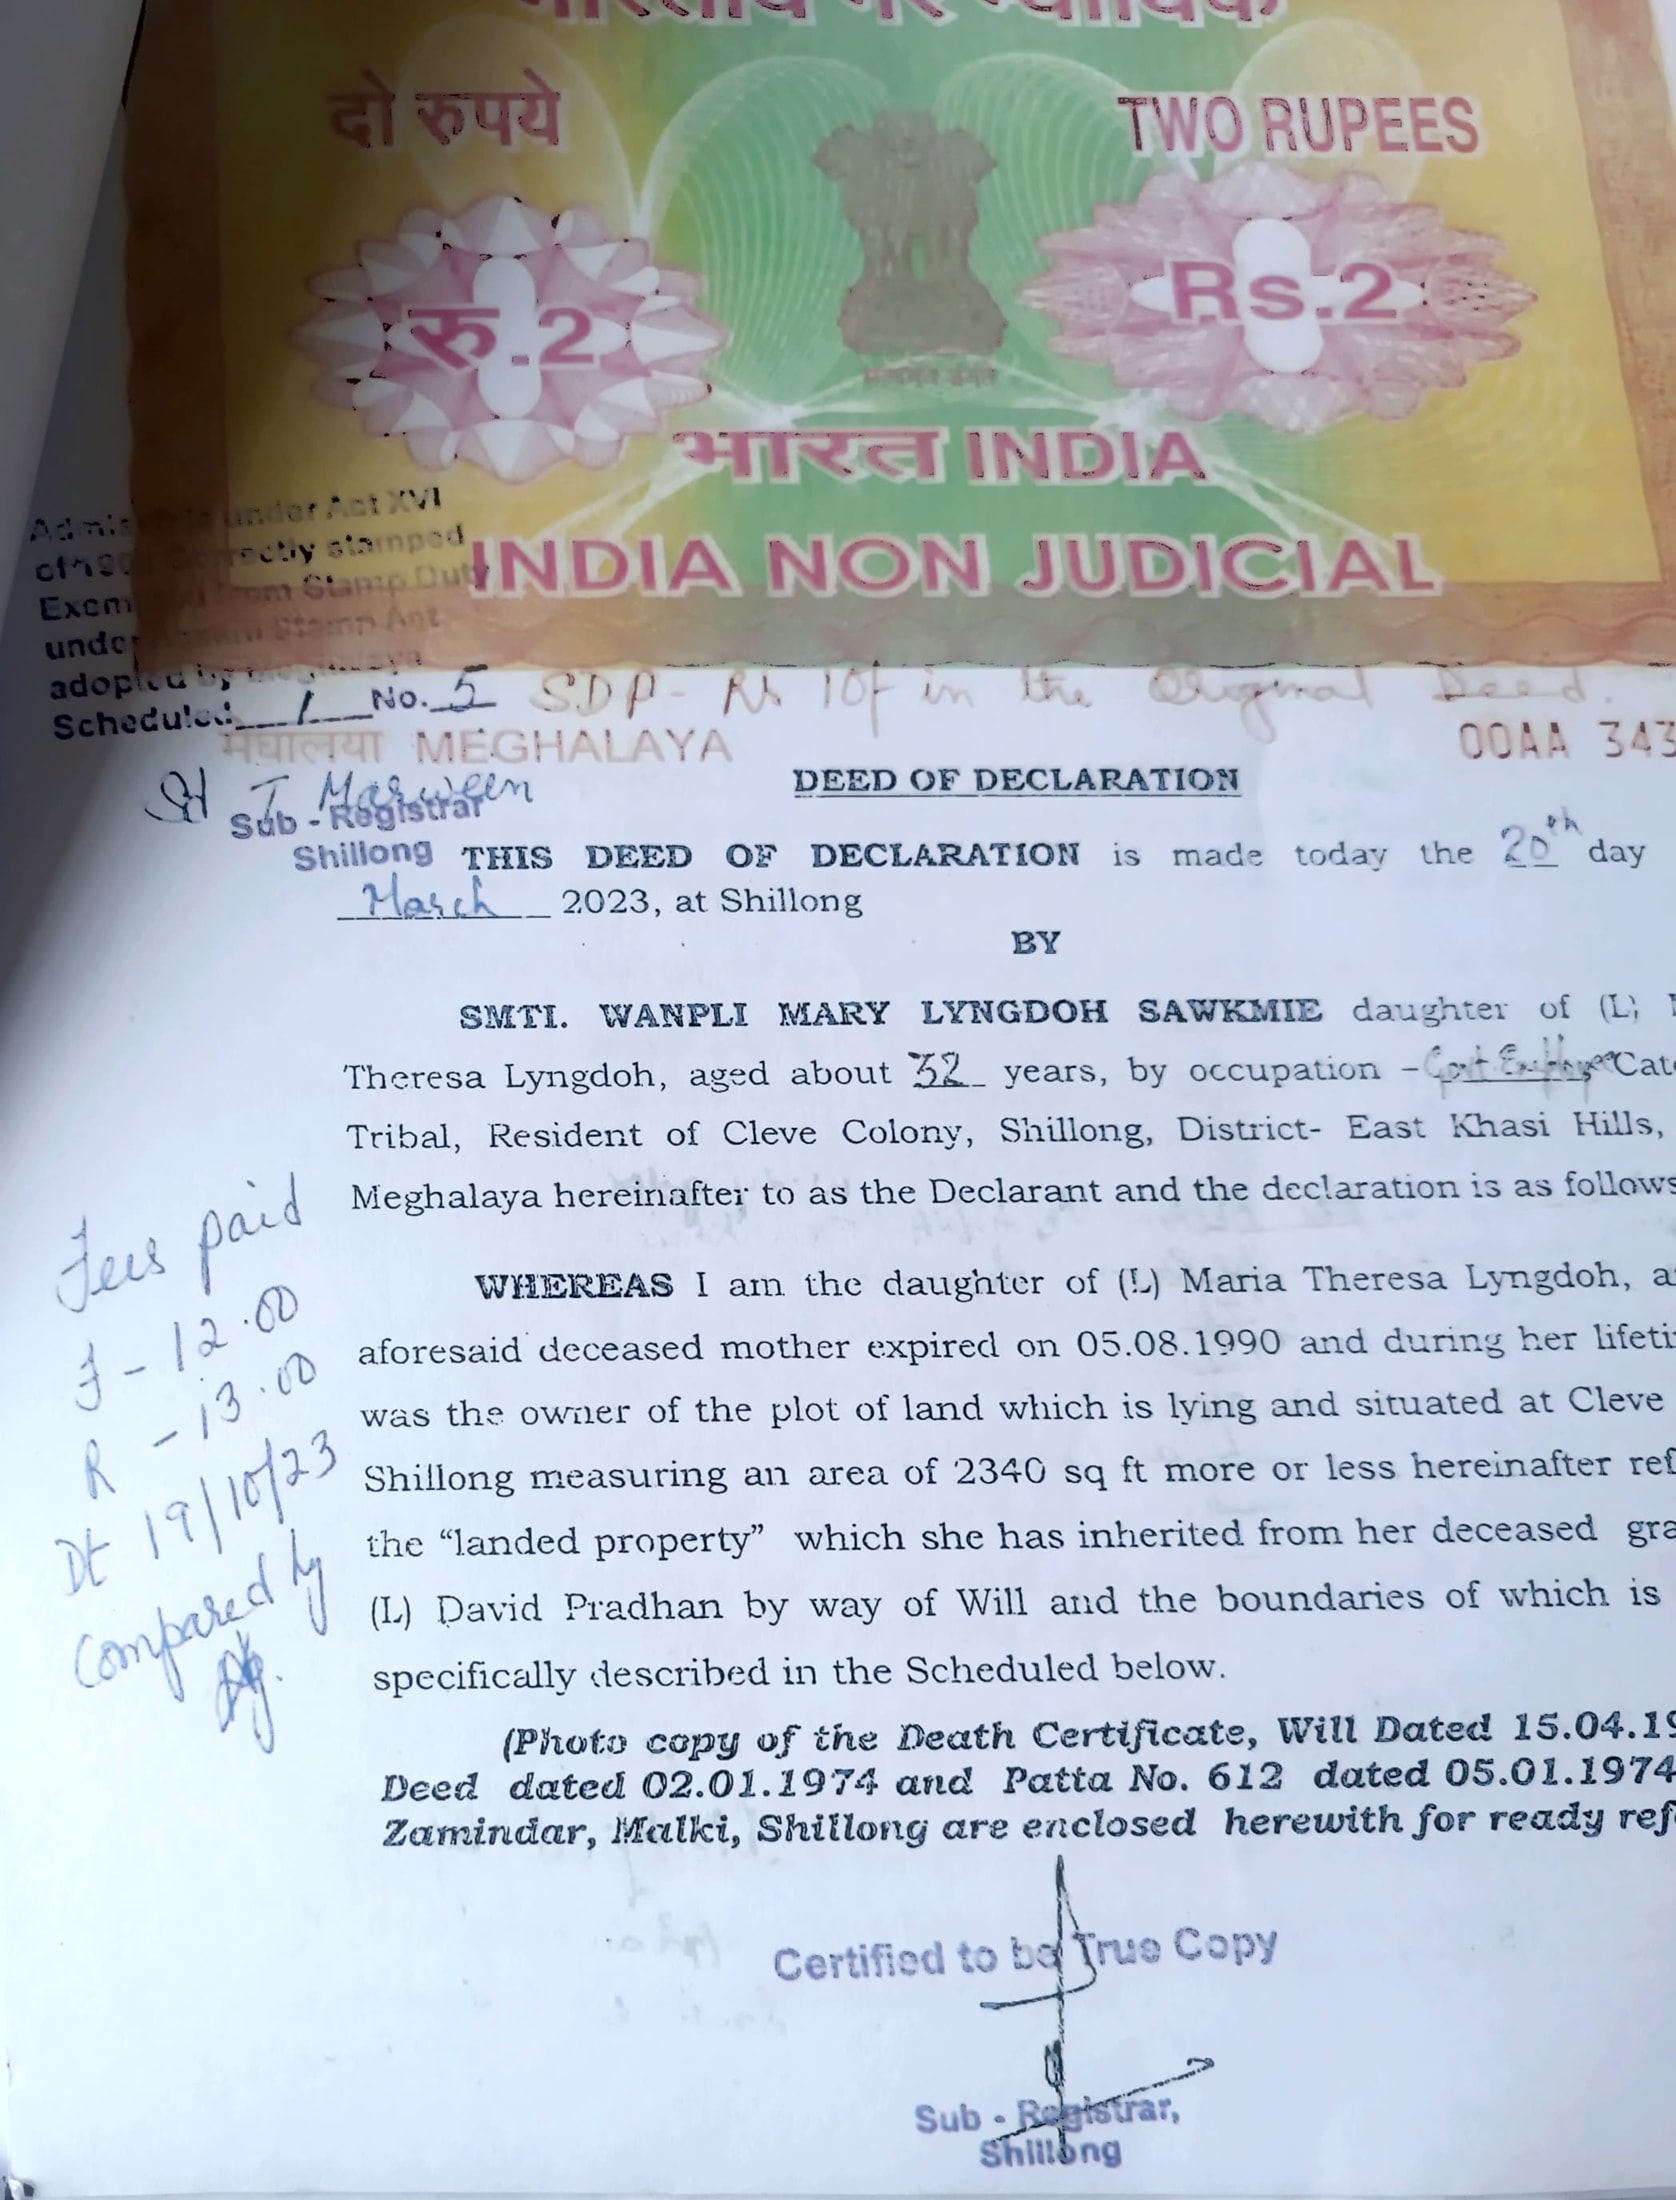 भारतीय गैर न्यायिक
दो रुपये
TWO RUPEES
रु.2
Rs.2
भारत INDIA
INDIA NON JUDICIAL
under Act XVI
Correctly stamped
from Stamp Duty
under Stamp Act
adopted by Meghalaya
Scheduled 1 No. 5
SDP - Rs 10/- in the Original Deed.
मेघालया MEGHALAYA
00AA 343
Sub - Registrar
Shillong
DEED OF DECLARATION
THIS DEED OF DECLARATION is made today the 20th day
March 2023, at Shillong
BY
SMTI. WANPLI MARY LYNGDOH SAWKMIE daughter of (L)
Theresa Lyngdoh, aged about 32 years, by occupation - Govt Employee Cat
Tribal, Resident of Cleve Colony, Shillong, District- East Khasi Hills,
Meghalaya hereinafter to as the Declarant and the declaration is as follows
WHEREAS I am the daughter of (L) Maria Theresa Lyngdoh, a
aforesaid deceased mother expired on 05.08.1990 and during her lifeti
was the owner of the plot of land which is lying and situated at Cleve
Shillong measuring an area of 2340 sq ft more or less hereinafter ref
the “landed property” which she has inherited from her deceased gra
(L) David Pradhan by way of Will and the boundaries of which is
specifically described in the Scheduled below.
(Photo copy of the Death Certificate, Will Dated 15.04.19
Deed dated 02.01.1974 and Patta No. 612 dated 05.01.1974
Zamindar, Malki, Shillong are enclosed herewith for ready ref
Fees paid
F - 12.00
R - 13.00
Dt 19/10/23
Compared by
Certified to be True Copy
Sub - Registrar,
Shillong